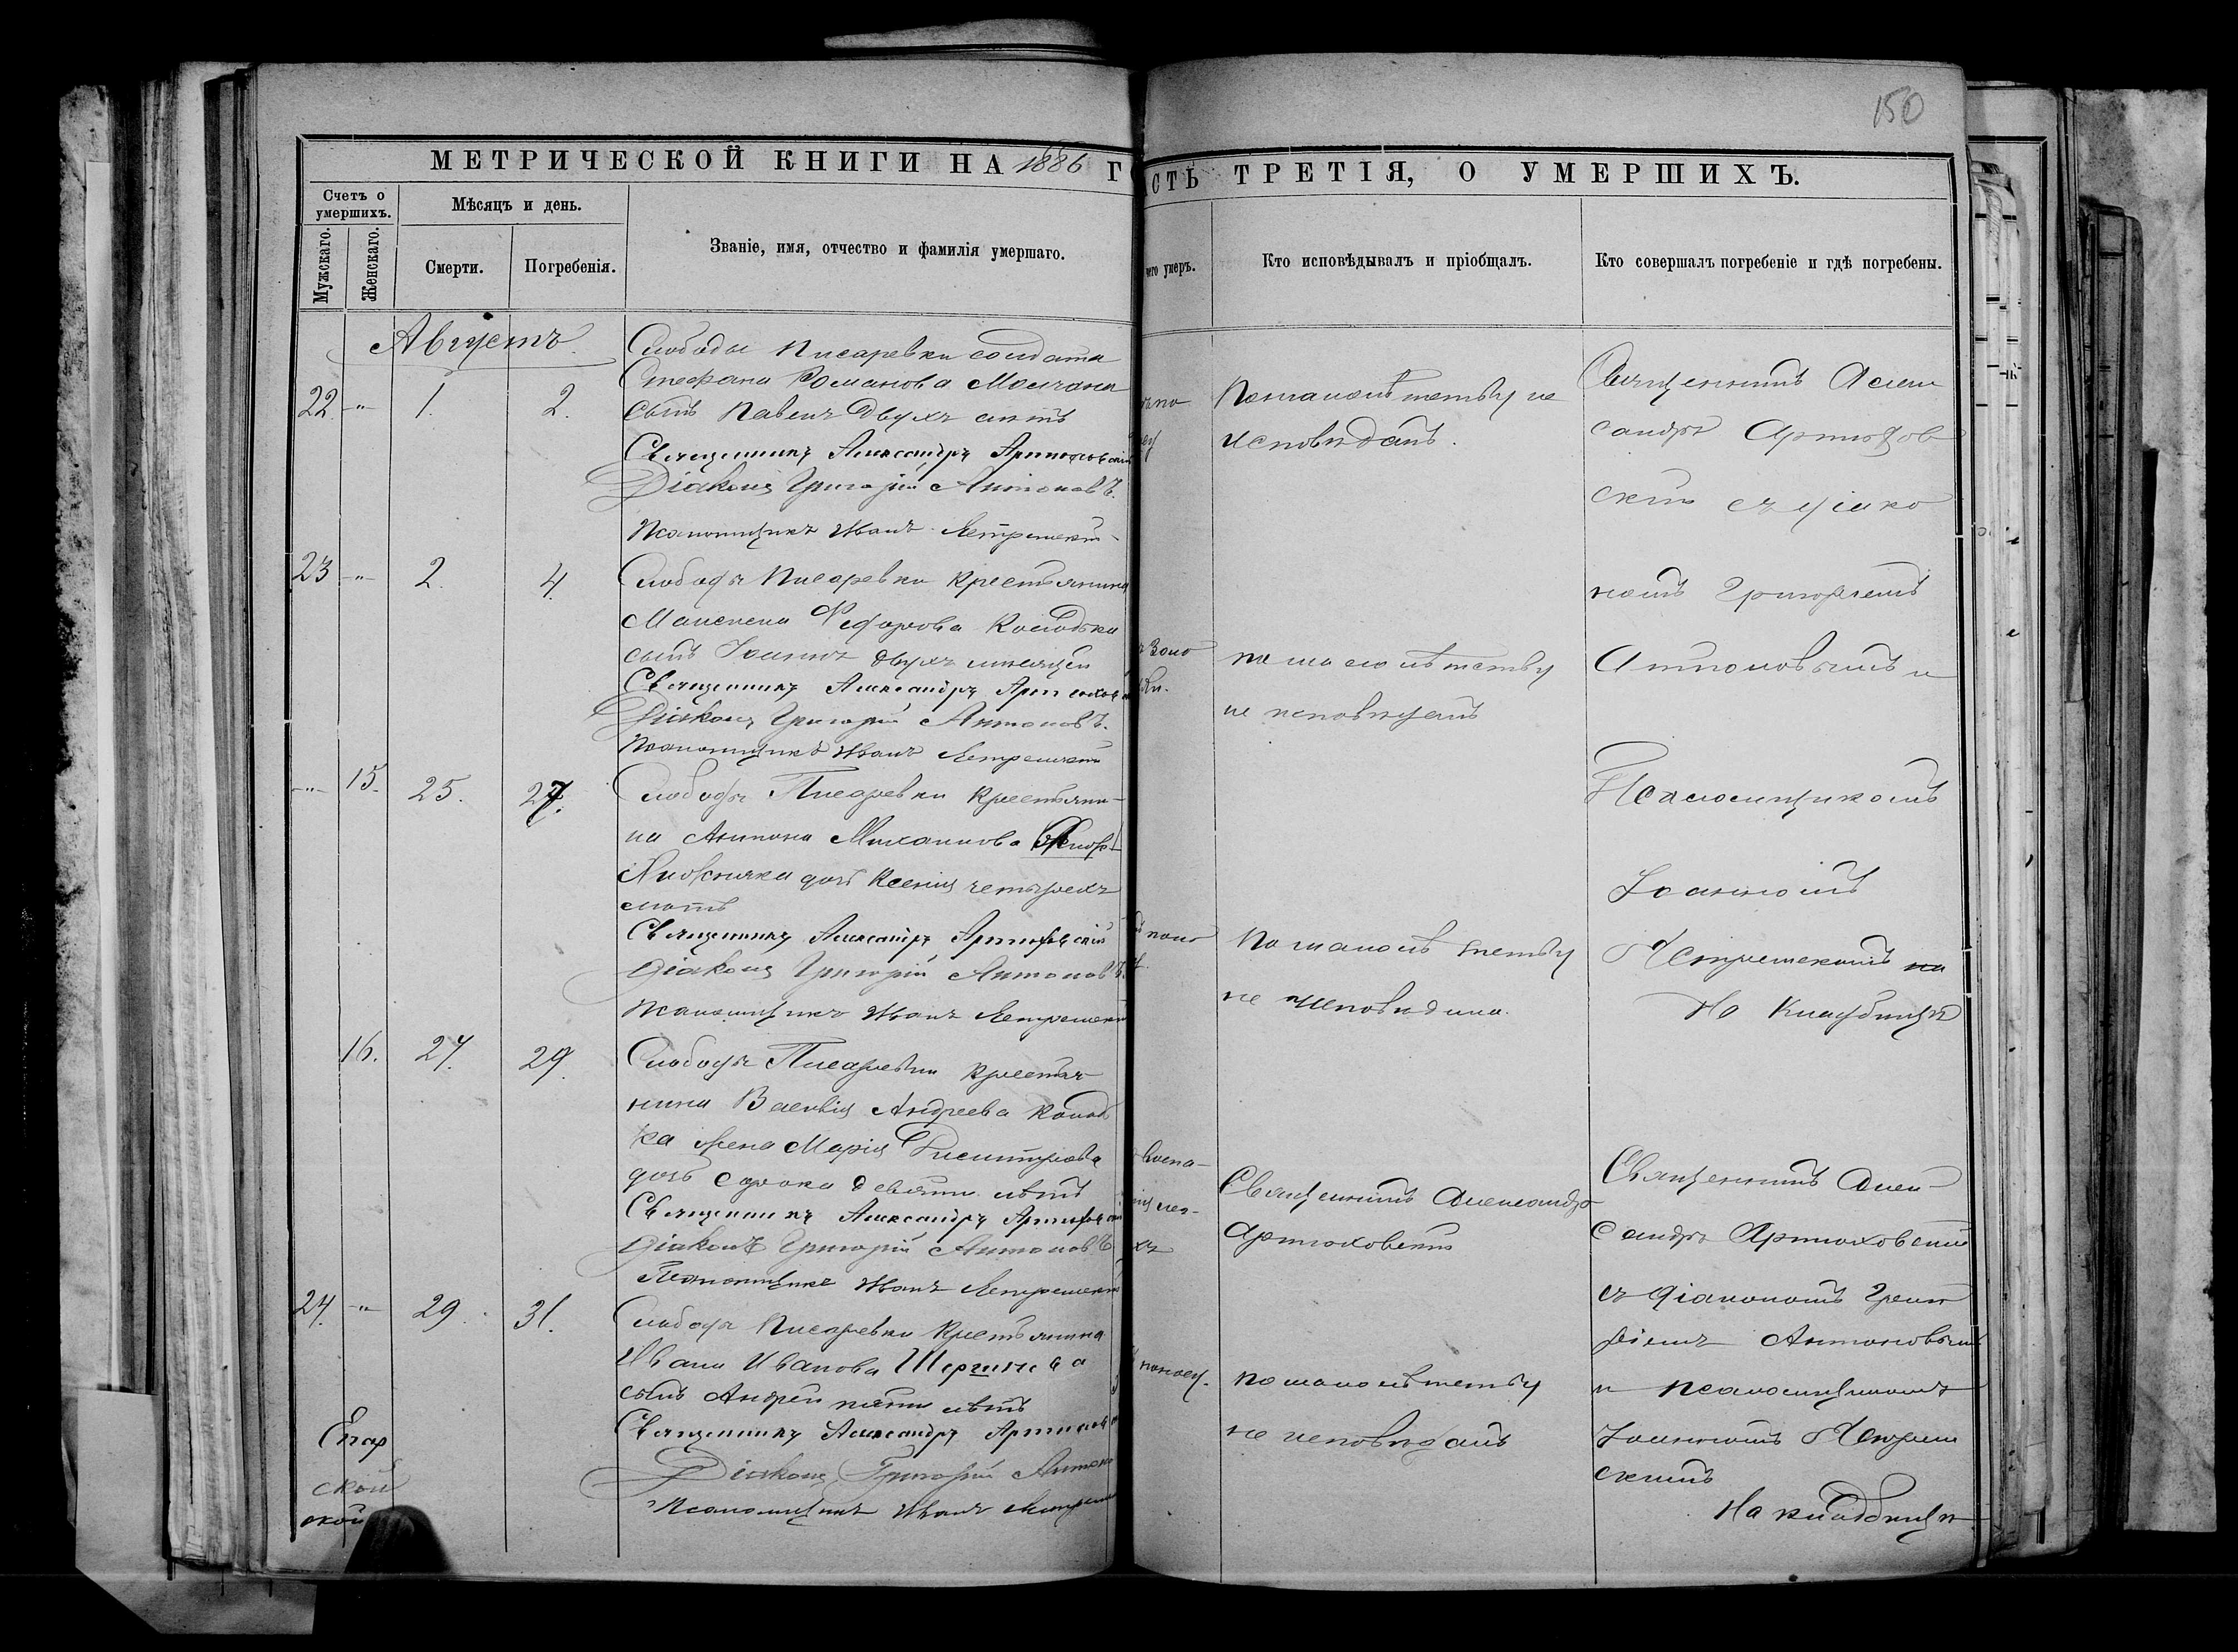 150
МЕТРИЧЕСКОЙ КНИГИ НА 1886 Г
СТЬ ТРЕТІЯ, О УМЕРШИХЪ.
Счетъ о умершихъ.
Мужскаго.
Женскаго.
Мѣсяцъ и день.
Смерти.
Погребенія.
Званіе, имя, отчество и фамилія умершаго.
чего умеръ.
Кто исповѣдывалъ и пріобщалъ.
Кто совершалъ погребеніе и гдѣ погребены.
Августъ
22 -"- 1. 2.
Слободы Писаревки солдата
Стефана Романова Молчана
сынъ Павелъ двухъ лѣтъ
Священникъ Александръ Артюховскій
Діаконъ Григорій Антоновъ.
Псаломщикъ Иванъ
По малолѣтству не
исповѣданъ.
Священникъ Алек
сандръ Артюхов
скій съ діако
номъ Григоріемъ
Антоновымъ и
Псаломщикомъ
Іоанномъ
На кладбищѣ
23 -"- 2. 4.
Слободы Писаревки крестьянина
Федорова
сынъ Іоаннъ двухъ мѣсяцей
Священникъ Александръ
Діаконъ Григорій Антоновъ.
Псаломщикъ Иванъ
по малолѣтству
не исповѣданъ
-"- 15. 25. 27.
Слободы Писаревки крестьяни-
на Антона Михаилова
дочь Ксенія четырехъ
лѣтъ
Священникъ Александръ Артюховскій
Діаконъ Григорій Антоновъ
Псаломщикъ Иванъ
По малолѣтству
не исповѣдана.
16. 27. 29.
Слободы Писаревки крестья-
нина Василія Андреева Колод
ка жена Марія Димитріева
дочь сорока девяти лѣтъ
Священникъ Александръ
Діаконъ Григорій Антоновъ
Псаломщикъ Иванъ
Священникъ Александръ
Артюховскій
Священникъ Алек-
сандръ Артюховскій
съ діакономъ Григо
ріемъ Антоновымъ
и псаломщикомъ
Іоанномъ
скимъ
На кладбищѣ
24. -"- 29. 31.
Слободы Писаревки крестьянина
Ивана Иванова
сынъ Андрей пяти лѣтъ
Священникъ Александръ
Діаконъ Григорій
Псаломщикъ Иванъ
по малолѣтству
не исповѣданъ
Епар
ской
ской